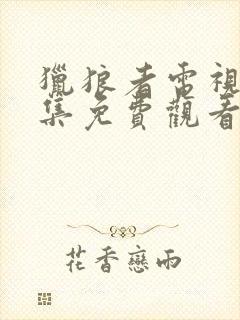 獵狼者電視
集免費觀看
花香戀雨